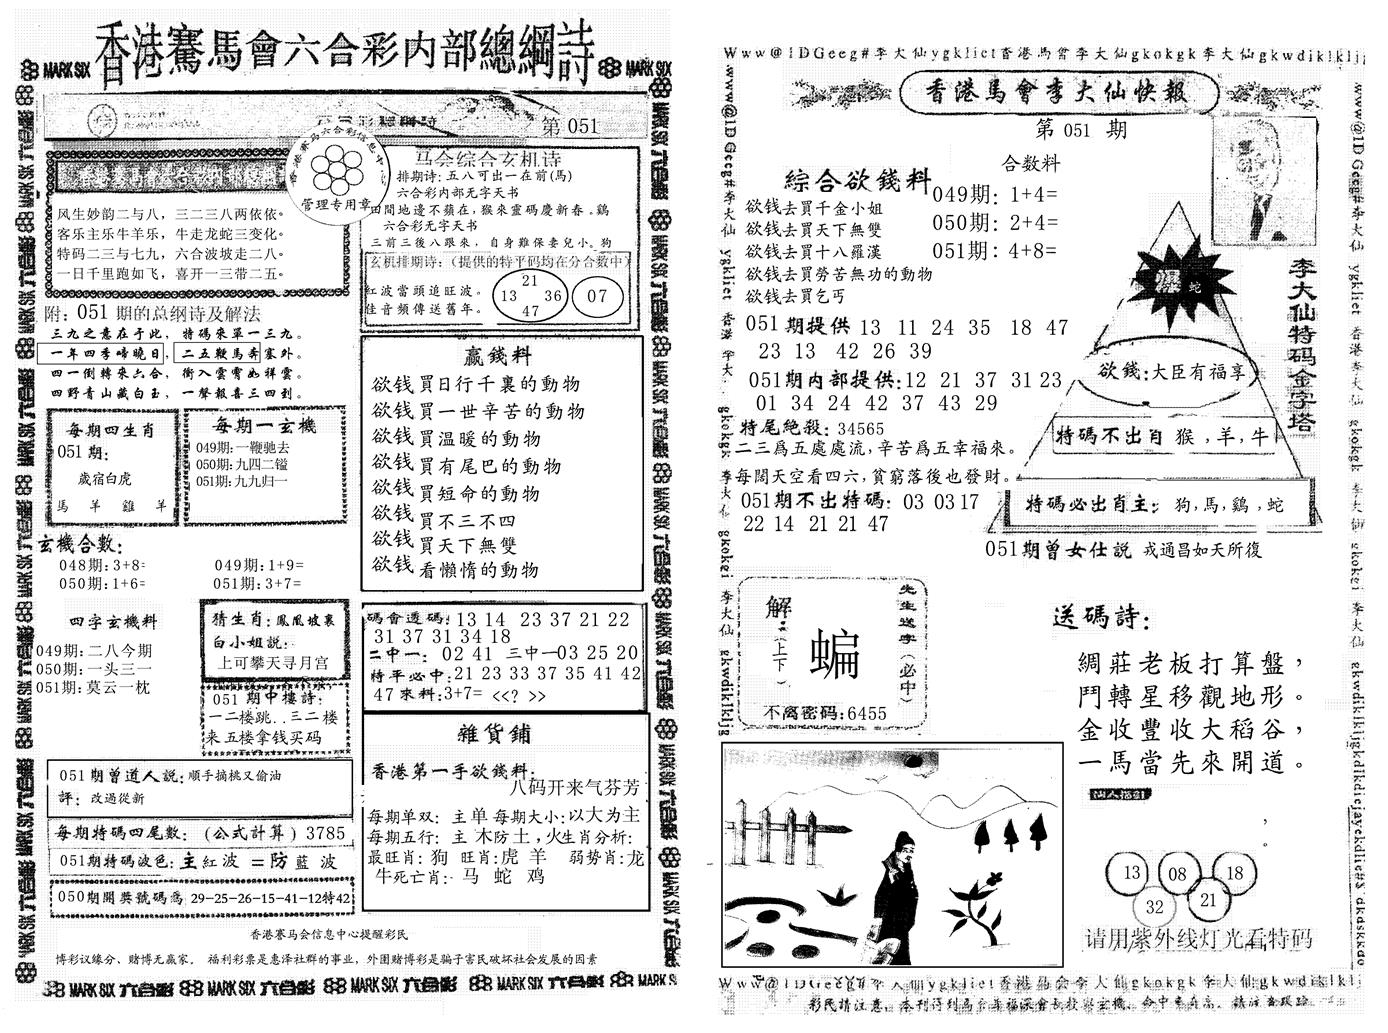 香港賽馬會六合彩内部總綱詩
MARK SIX
MARK SIX
第 051
香港赛马六合彩信息中心
管理专用章
风生妙韵二与八，三二三八两依依。
客乐主乐牛羊乐，牛走龙蛇三变化。
特码二三与七九，六合波坡走二八。
一日千里跑如飞，喜开一三带二五。
附：051 期的总纲诗及解法
三九之意在于此，特碼來單一三九。
一年四季啼曉日，二五鞭馬奔塞外。
四一倒轉來六合，衝入雲霄如祥雲。
四野青山藏白玉，一聲報喜三四到。
每期四生肖
051 期：
歲宿白虎
馬 羊 雞 羊
每期一玄機
049期:一鞭驰去
050期:九四二镒
051期:九九归一
玄機合數：
048期:3+8=
049期:1+9=
050期:1+6=
051期:3+7=
四字玄機料
049期:二八今期
050期:一头三一
051期:莫云一枕
猜生肖：鳳凰坡裏
白小姐説：
上可攀天寻月宫
051 期中樓詩：
一二楼跳..三二楼
来五楼拿钱买码
051期曾道人説：順手摘桃又偷油
評：改過從新
每期特碼四尾數：(公式計算) 3785
051期特碼波色:主紅波 =防藍波
050期開獎號碼爲 29-25-26-15-41-12特42
香港赛马会信息中心提醒彩民
博彩议缘分、赌博无赢家。 福利彩票是惠泽社群的事业，外围赌博彩是骗子害民破坏社会发展的因素
马会综合玄机诗
排期詩：五八可出一在前(馬)
六合彩内部无字天书
田間地邊不蘋在，猴來靈碼慶新春。鷄
六合彩无字天书
三前三後八跟來，自身難保妻兒小。狗
玄机排期诗：(提供的特平码均在分合数中)
紅波當頭追旺波。
佳音頻傳送舊年。
21
13 36
47
07
贏錢料
欲钱買日行千裏的動物
欲钱買一世辛苦的動物
欲钱買温暖的動物
欲钱買有尾巴的動物
欲钱買短命的動物
欲钱買不三不四
欲钱買天下無雙
欲钱看懒惰的動物
碼會透碼：13 14 23 37 21 22
31 37 31 34 18
二中一：02 41 三中一03 25 20
特平必中：21 23 33 37 35 41 42
47 來料:3+7= <<? >>
雜貨鋪
香港第一手欲錢料：
八码开来气芬芳
每期单双：主单 每期大小:以大为主
每期五行：主 木防土，火生肖分析：
最旺肖：狗 旺肖:虎 羊 弱势肖:龙
牛死亡肖： 马 蛇 鸡
MARK SIX
Www@1DGeeg#李大仙ygkliet香港馬曾李大仙gkokgk李大仙gkwdiklklij
香港馬會李大仙快報
第 051 期
綜合欲錢料
欲钱去買千金小姐
欲钱去買天下無雙
欲钱去買十八羅漢
欲钱去買勞苦無功的動物
欲钱去買乞丐
合數料
049期: 1+4=
050期: 2+4=
051期: 4+8=
051期提供 13 11 24 35 18 47
23 13 42 26 39
051期内部提供:12 21 37 31 23
01 34 24 42 37 43 29
特尾绝殺：34565
二三爲五處處流，辛苦爲五幸福來。
每闊天空看四六，貧窮落後也發財。
051期不出特碼: 03 03 17
22 14 21 21 47
蛇
欲錢:大臣有福享
特碼不出肖 猴，羊，牛
特碼必出肖主：狗，馬，鷄，蛇
李大仙特码金字塔
051期曾女仕説 戎過昌如天所復
解
（上下）
蝙
先生送字（必中）
不离密码:6455
送碼詩：
綢莊老板打算盤，
鬥轉星移觀地形。
金收豐收大稻谷，
一馬當先來開道。
13 08 18
32 21
请用紫外线灯光看特码